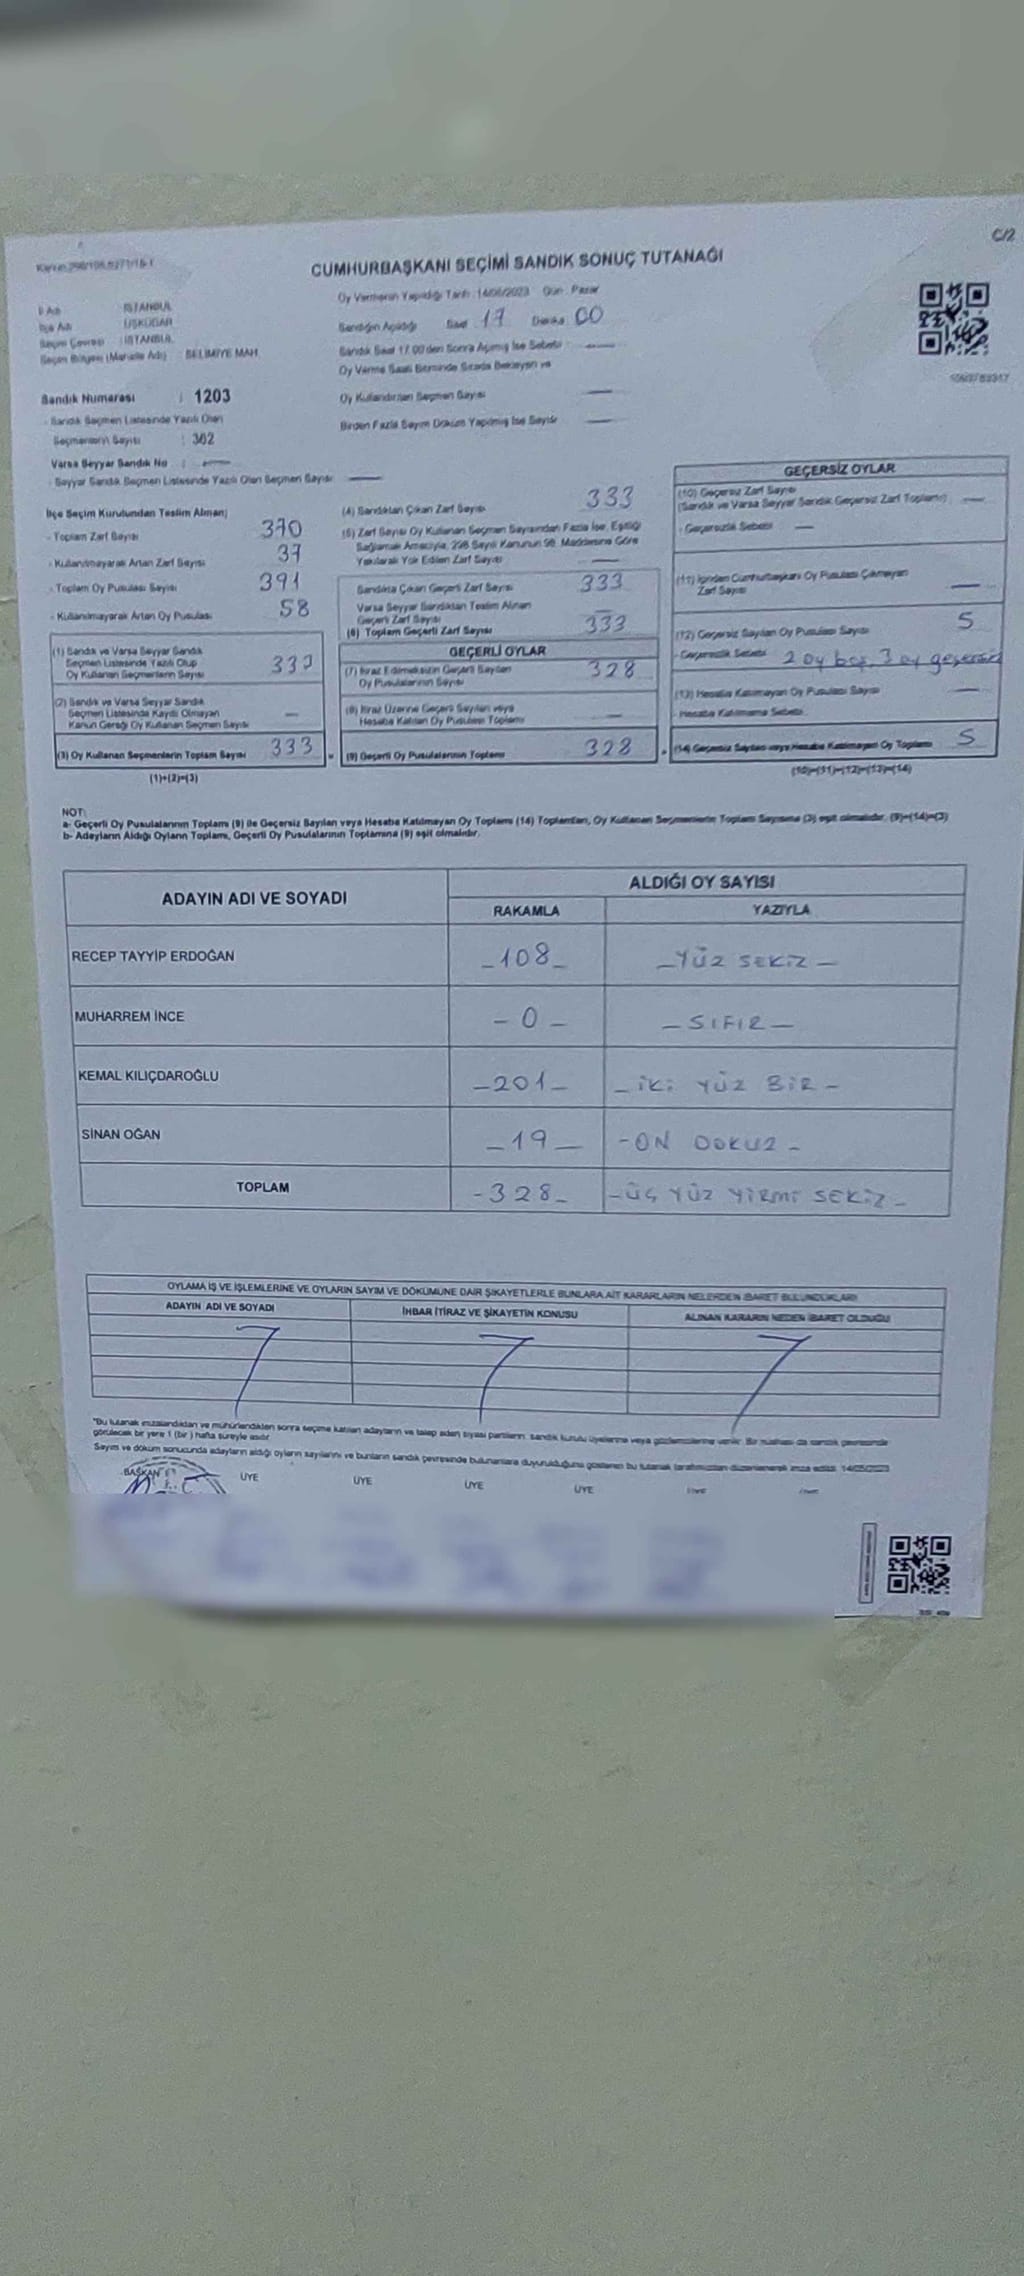 C/2
CUMHURBAŞKANI SEÇİMİ SANDIK SONUÇ TUTANAĞI
Oy Vermenin Yapıldığı Tarih : 14/05/2023 Gün : Pazar
İl Adı : İSTANBUL
İlçe Adı : ÜSKÜDAR
Seçim Çevresi : İSTANBUL
Seçim Bölgesi (Mahalle Adı) : SELİMİYE MAH.
Sandığın Açıldığı Saat : 17 Dakika : 00
Sandık Saat 17.00'den Sonra Açılmış İse Sebebi : —
Oy Verme Saati Bitiminde Sırada Bekleyen ve
Oy Kullandırılan Seçmen Sayısı —
Birden Fazla Sayım Döküm Yapılmış İse Sayısı —
Sandık Numarası : 1203
- Sandık Seçmen Listesinde Yazılı Olan
Seçmenlerin Sayısı : 362
Varsa Seyyar Sandık No : —
- Seyyar Sandık Seçmen Listesinde Yazılı Olan Seçmen Sayısı —
İlçe Seçim Kurulundan Teslim Alınan;
- Toplam Zarf Sayısı 370
- Kullanılmayarak Artan Zarf Sayısı 37
- Toplam Oy Pusulası Sayısı 391
- Kullanılmayarak Artan Oy Pusulası 58
(1) Sandık ve Varsa Seyyar Sandık
Seçmen Listesinde Yazılı Olup
Oy Kullanan Seçmenlerin Sayısı 333
(2) Sandık ve Varsa Seyyar Sandık
Seçmen Listesinde Kayıtlı Olmayan
Kanun Gereği Oy Kullanan Seçmen Sayısı —
(3) Oy Kullanan Seçmenlerin Toplam Sayısı 333
(1)+(2)=(3)
(4) Sandıktan Çıkan Zarf Sayısı 333
(5) Zarf Sayısı Oy Kullanan Seçmen Sayısından Fazla İse, Eşitliği
Sağlamak Amacıyla, 298 Sayılı Kanunun 98. Maddesine Göre
Yakılarak Yok Edilen Zarf Sayısı —
Sandıkta Çıkan Geçerli Zarf Sayısı 333
Varsa Seyyar Sandıktan Teslim Alınan
Geçerli Zarf Sayısı —
(6) Toplam Geçerli Zarf Sayısı 333
GEÇERLİ OYLAR
(7) İtiraz Edilmeksizin Geçerli Sayılan
Oy Pusulalarının Sayısı 328
(8) İtiraz Üzerine Geçerli Sayılan veya
Hesaba Katılan Oy Pusulası Toplamı —
(9) Geçerli Oy Pusulalarının Toplamı 328
GEÇERSİZ OYLAR
(10) Geçersiz Zarf Sayısı
(Sandık ve Varsa Seyyar Sandık Geçersiz Zarf Toplamı) —
- Geçersizlik Sebebi —
(11) İçinden Cumhurbaşkanı Oy Pusulası Çıkmayan
Zarf Sayısı —
(12) Geçersiz Sayılan Oy Pusulası Sayısı 5
- Geçersizlik Sebebi 2 oy boş, 3 oy geçersiz
(13) Hesaba Katılmayan Oy Pusulası Sayısı —
- Hesaba Katılmama Sebebi
(14) Geçersiz Sayılan veya Hesaba Katılmayan Oy Toplamı 5
(10)+(11)+(12)+(13)=(14)
NOT:
a- Geçerli Oy Pusulalarının Toplamı (9) ile Geçersiz Sayılan veya Hesaba Katılmayan Oy Toplamı (14) Toplamları, Oy Kullanan Seçmenlerin Toplam Sayısına (3) eşit olmalıdır. (9)+(14)=(3)
b- Adayların Aldığı Oyların Toplamı, Geçerli Oy Pusulalarının Toplamına (9) eşit olmalıdır.
ADAYIN ADI VE SOYADI
ALDIĞI OY SAYISI
RAKAMLA YAZIYLA
RECEP TAYYİP ERDOĞAN -108- -YÜZ SEKİZ-
MUHARREM İNCE -0- -SIFIR-
KEMAL KILIÇDAROĞLU -201- -İKİ YÜZ BİR-
SİNAN OĞAN -19- -ON DOKUZ-
TOPLAM -328- -ÜÇ YÜZ YİRMİ SEKİZ-
OYLAMA İŞ VE İŞLEMLERİNE VE OYLARIN SAYIM VE DÖKÜMÜNE DAİR ŞİKAYETLERLE BUNLARA AİT KARARLARIN NELERDEN İBARET BULUNDUKLARI
ADAYIN ADI VE SOYADI İHBAR İTİRAZ VE ŞİKAYETİN KONUSU ALINAN KARARIN NEDEN İBARET OLDUĞU
"Bu tutanak imzalandıktan ve mühürlendikten sonra seçime katılan adayların ve talep eden siyasi partilerin, sandık kurulu üyelerine veya gözlemcilerine verilir. Bir nüshası da sandık çevresinde
görülecek bir yere 1 (bir) hafta süreyle asılır.
Sayım ve döküm sonucunda adayların aldığı oyların sayılarını ve bunların sandık çevresinde bulunanlara duyurulduğunu gösteren bu tutanak tarafımızdan düzenlenerek imza edildi. 14/05/2023
BAŞKAN ÜYE ÜYE ÜYE ÜYE ÜYE ÜYE